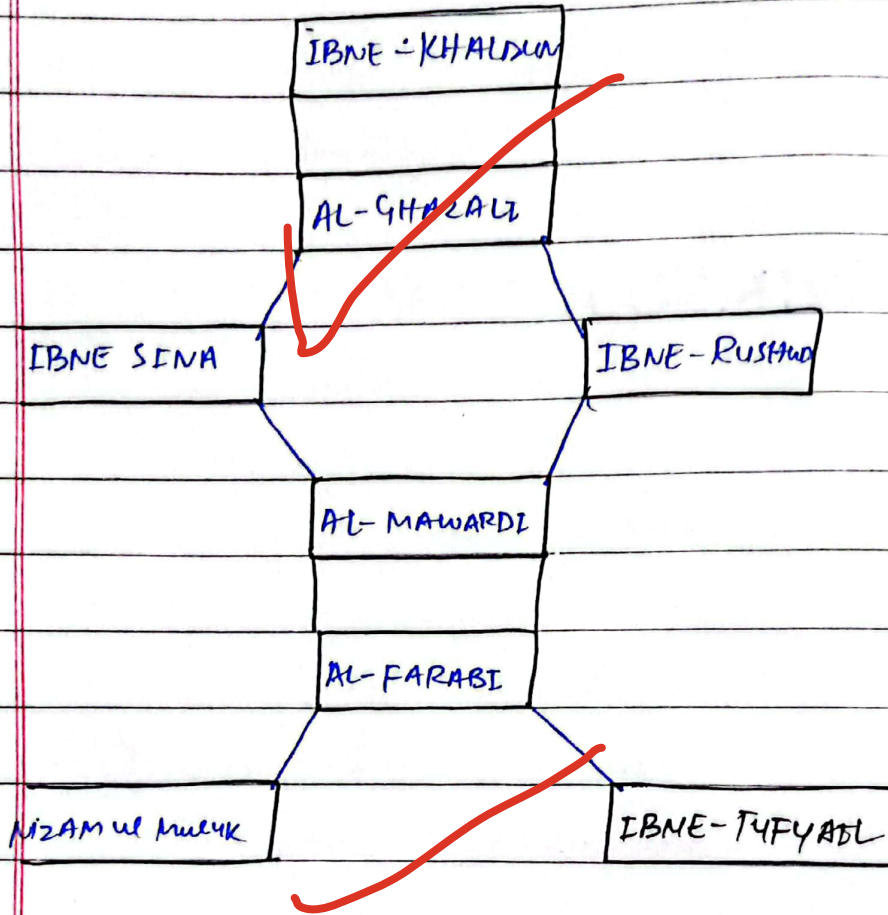 IBNE-KHALDUN
AL-GHAZALI
IBNE SINA
IBNE-RUSHUD
AL-MAWARDI
AL-FARABI
NIZAM UL MULUK
IBNE-TYFYAEL